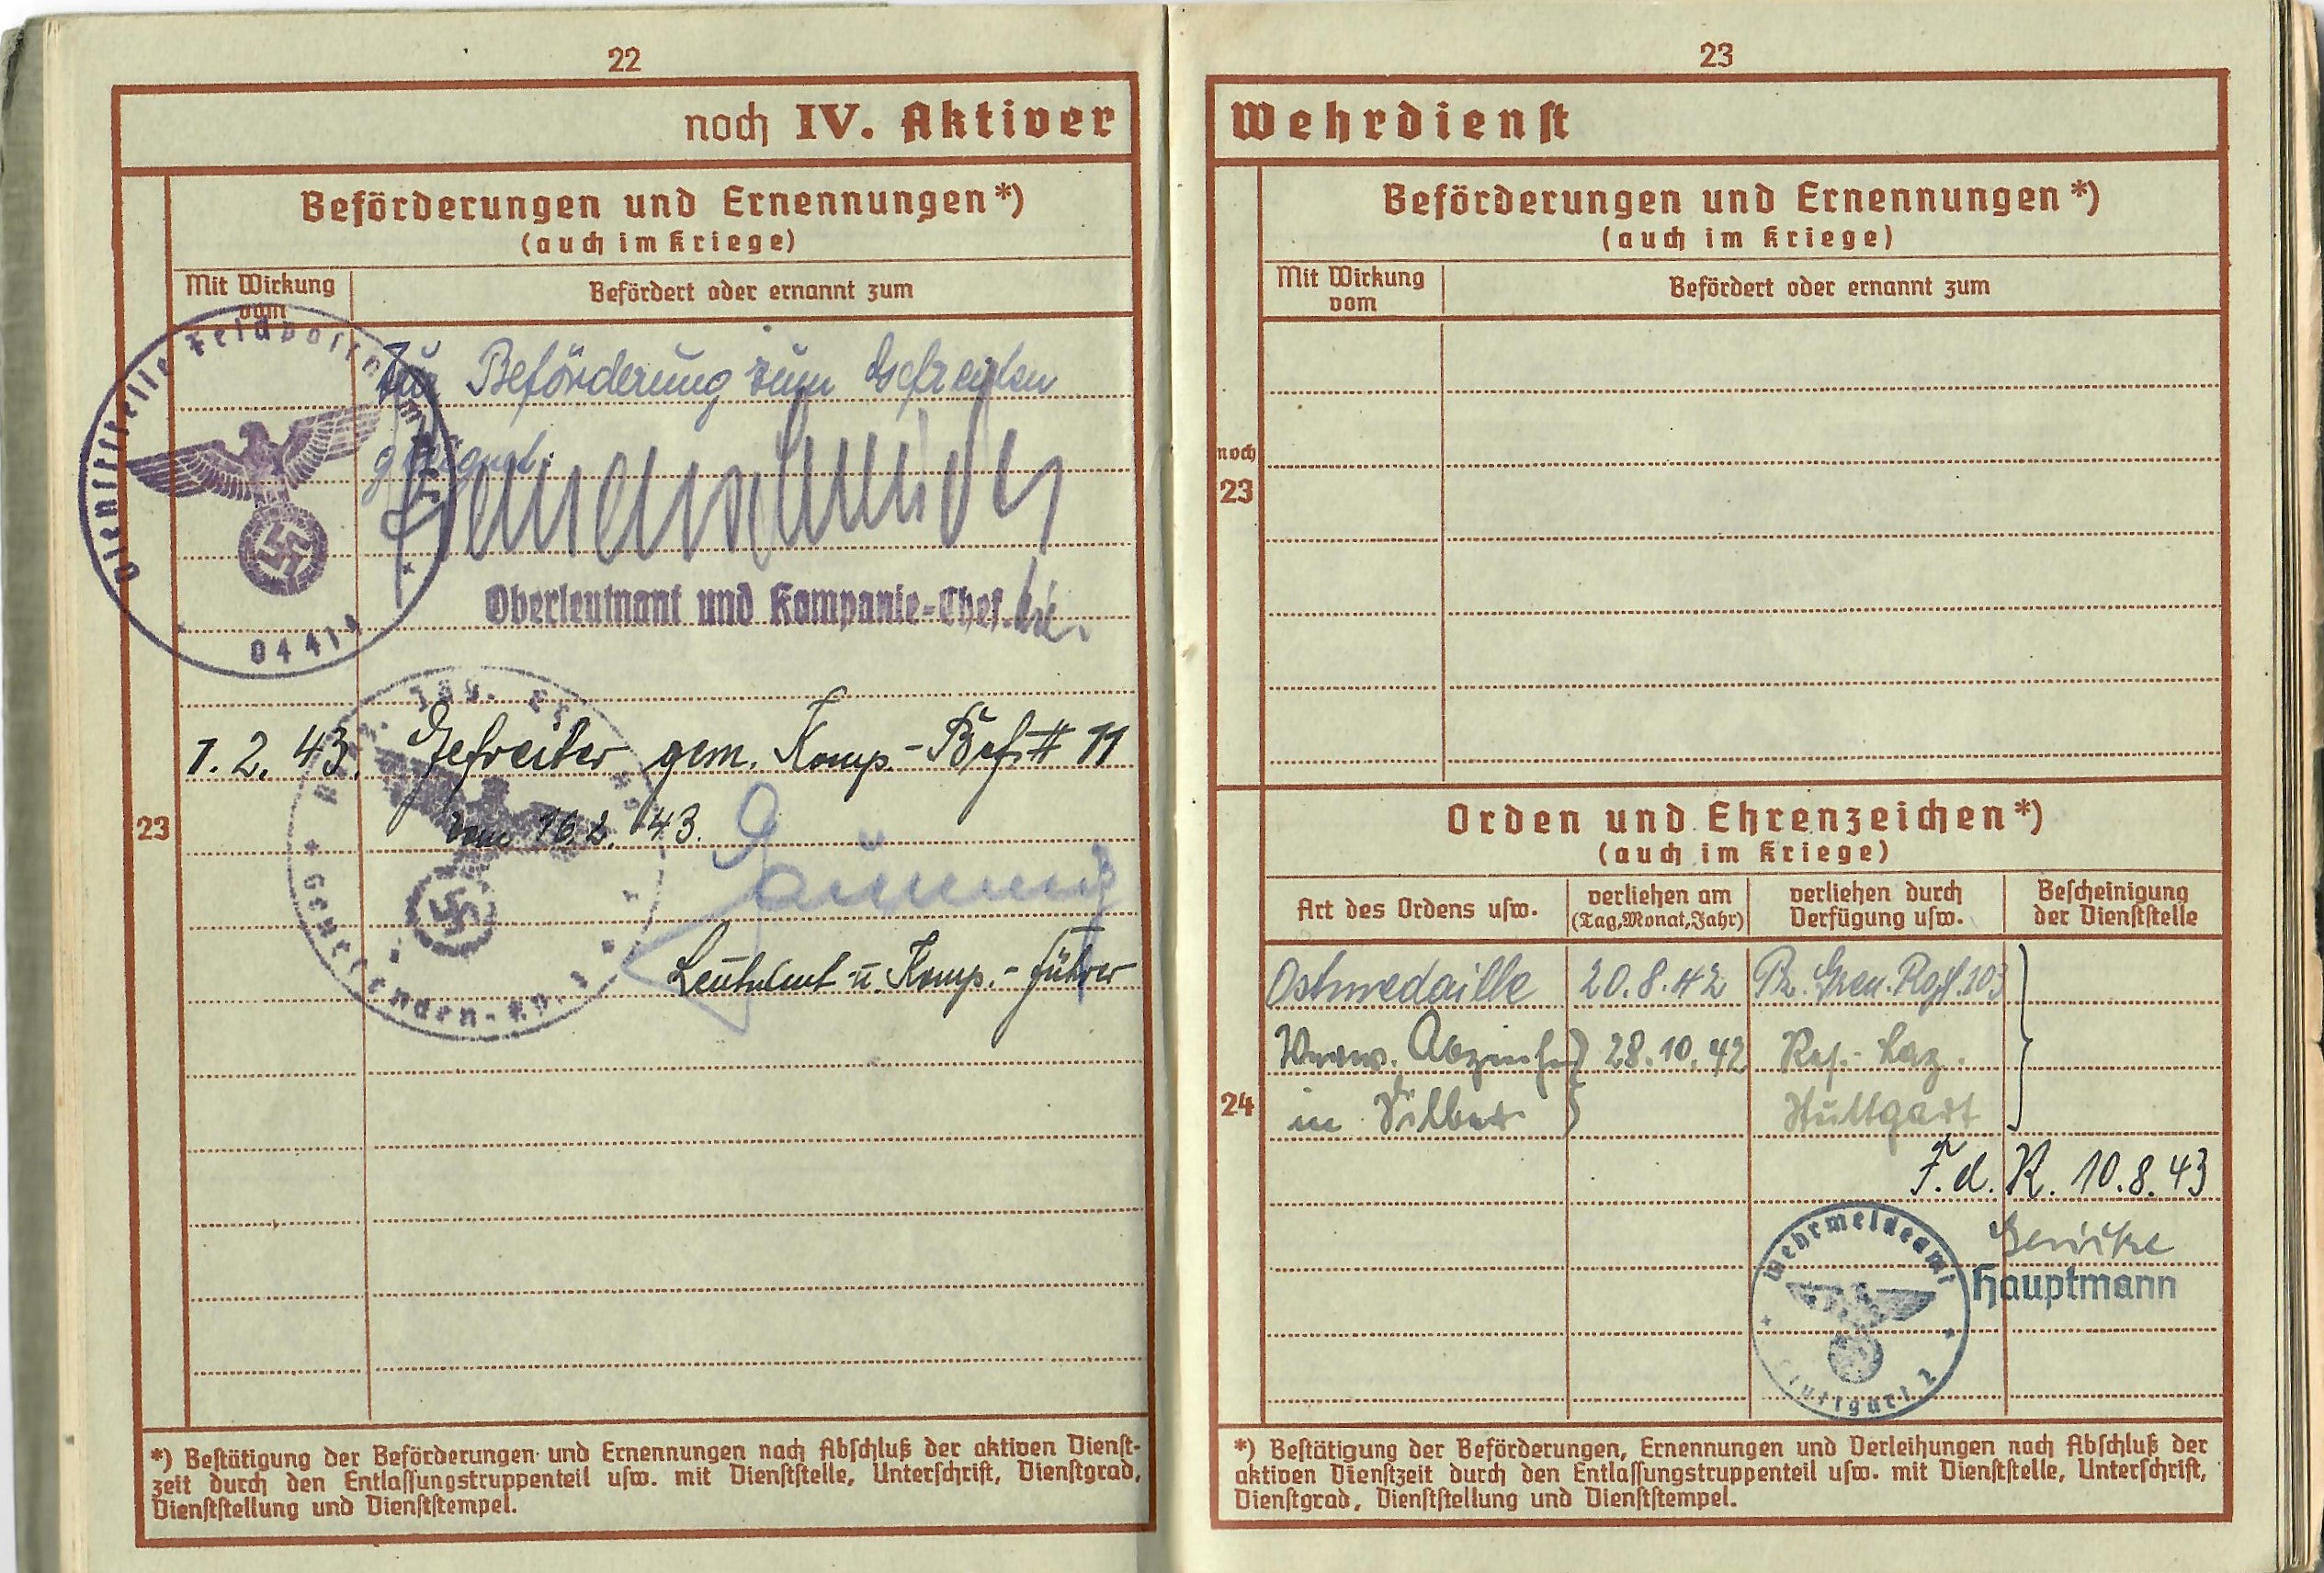 22
noch IV. Aktiver
Beförderungen und Ernennungen*)
(auch im Kriege)
Mit Wirkung vom
Befördert oder ernannt zum
Dienststelle Feldpostnummer
zur Beförderung zum Gefreiten
geeignet.
Oberleutnant und Kompanie-Chef.
0441
1.2.43. Gefreiter gem. Komp.-Bef. # 11
vom 16.2.43.
23
Genesenden-Kp.
Leutnant u. Komp.-Führer
*) Bestätigung der Beförderungen und Ernennungen nach Abschluß der aktiven Dienst-
zeit durch den Entlassungstruppenteil usw. mit Dienststelle, Unterschrift, Dienstgrad,
Dienststellung und Dienststempel.
23
Wehrdienst
Beförderungen und Ernennungen*)
(auch im Kriege)
Mit Wirkung vom
Befördert oder ernannt zum
noch
23
Orden und Ehrenzeichen*)
(auch im Kriege)
Art des Ordens usw.
verliehen am (Tag, Monat, Jahr)
verliehen durch Verfügung usw.
Bescheinigung der Dienststelle
Ostmedaille 20.8.42 Pz. Gren. Rgt. 103
Verw. Abzeichen 28.10.42 Res.-Laz.
24
in Silber Stuttgart
F.d.R. 10.8.43
Wehrmeldeamt
Hauptmann
Stuttgart 2
*) Bestätigung der Beförderungen, Ernennungen und Verleihungen nach Abschluß der
aktiven Dienstzeit durch den Entlassungstruppenteil usw. mit Dienststelle, Unterschrift,
Dienstgrad, Dienststellung und Dienststempel.